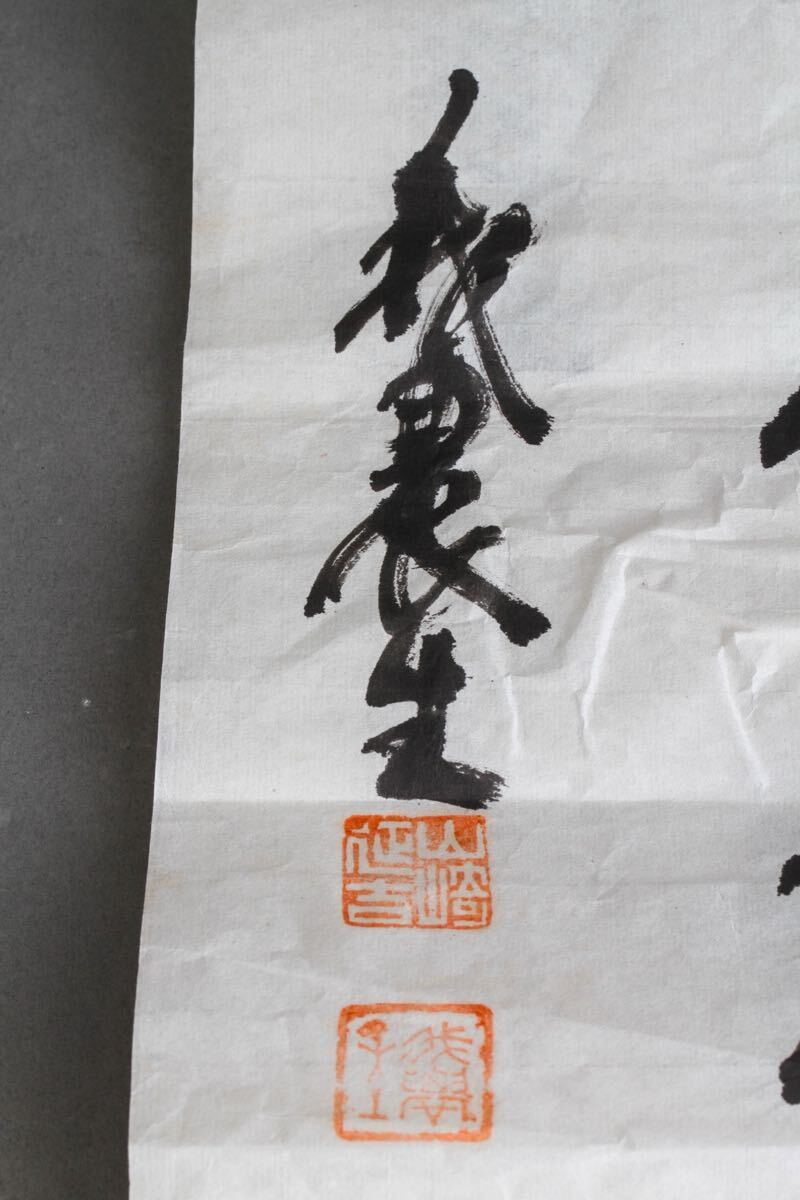 我農生
山崎延吉